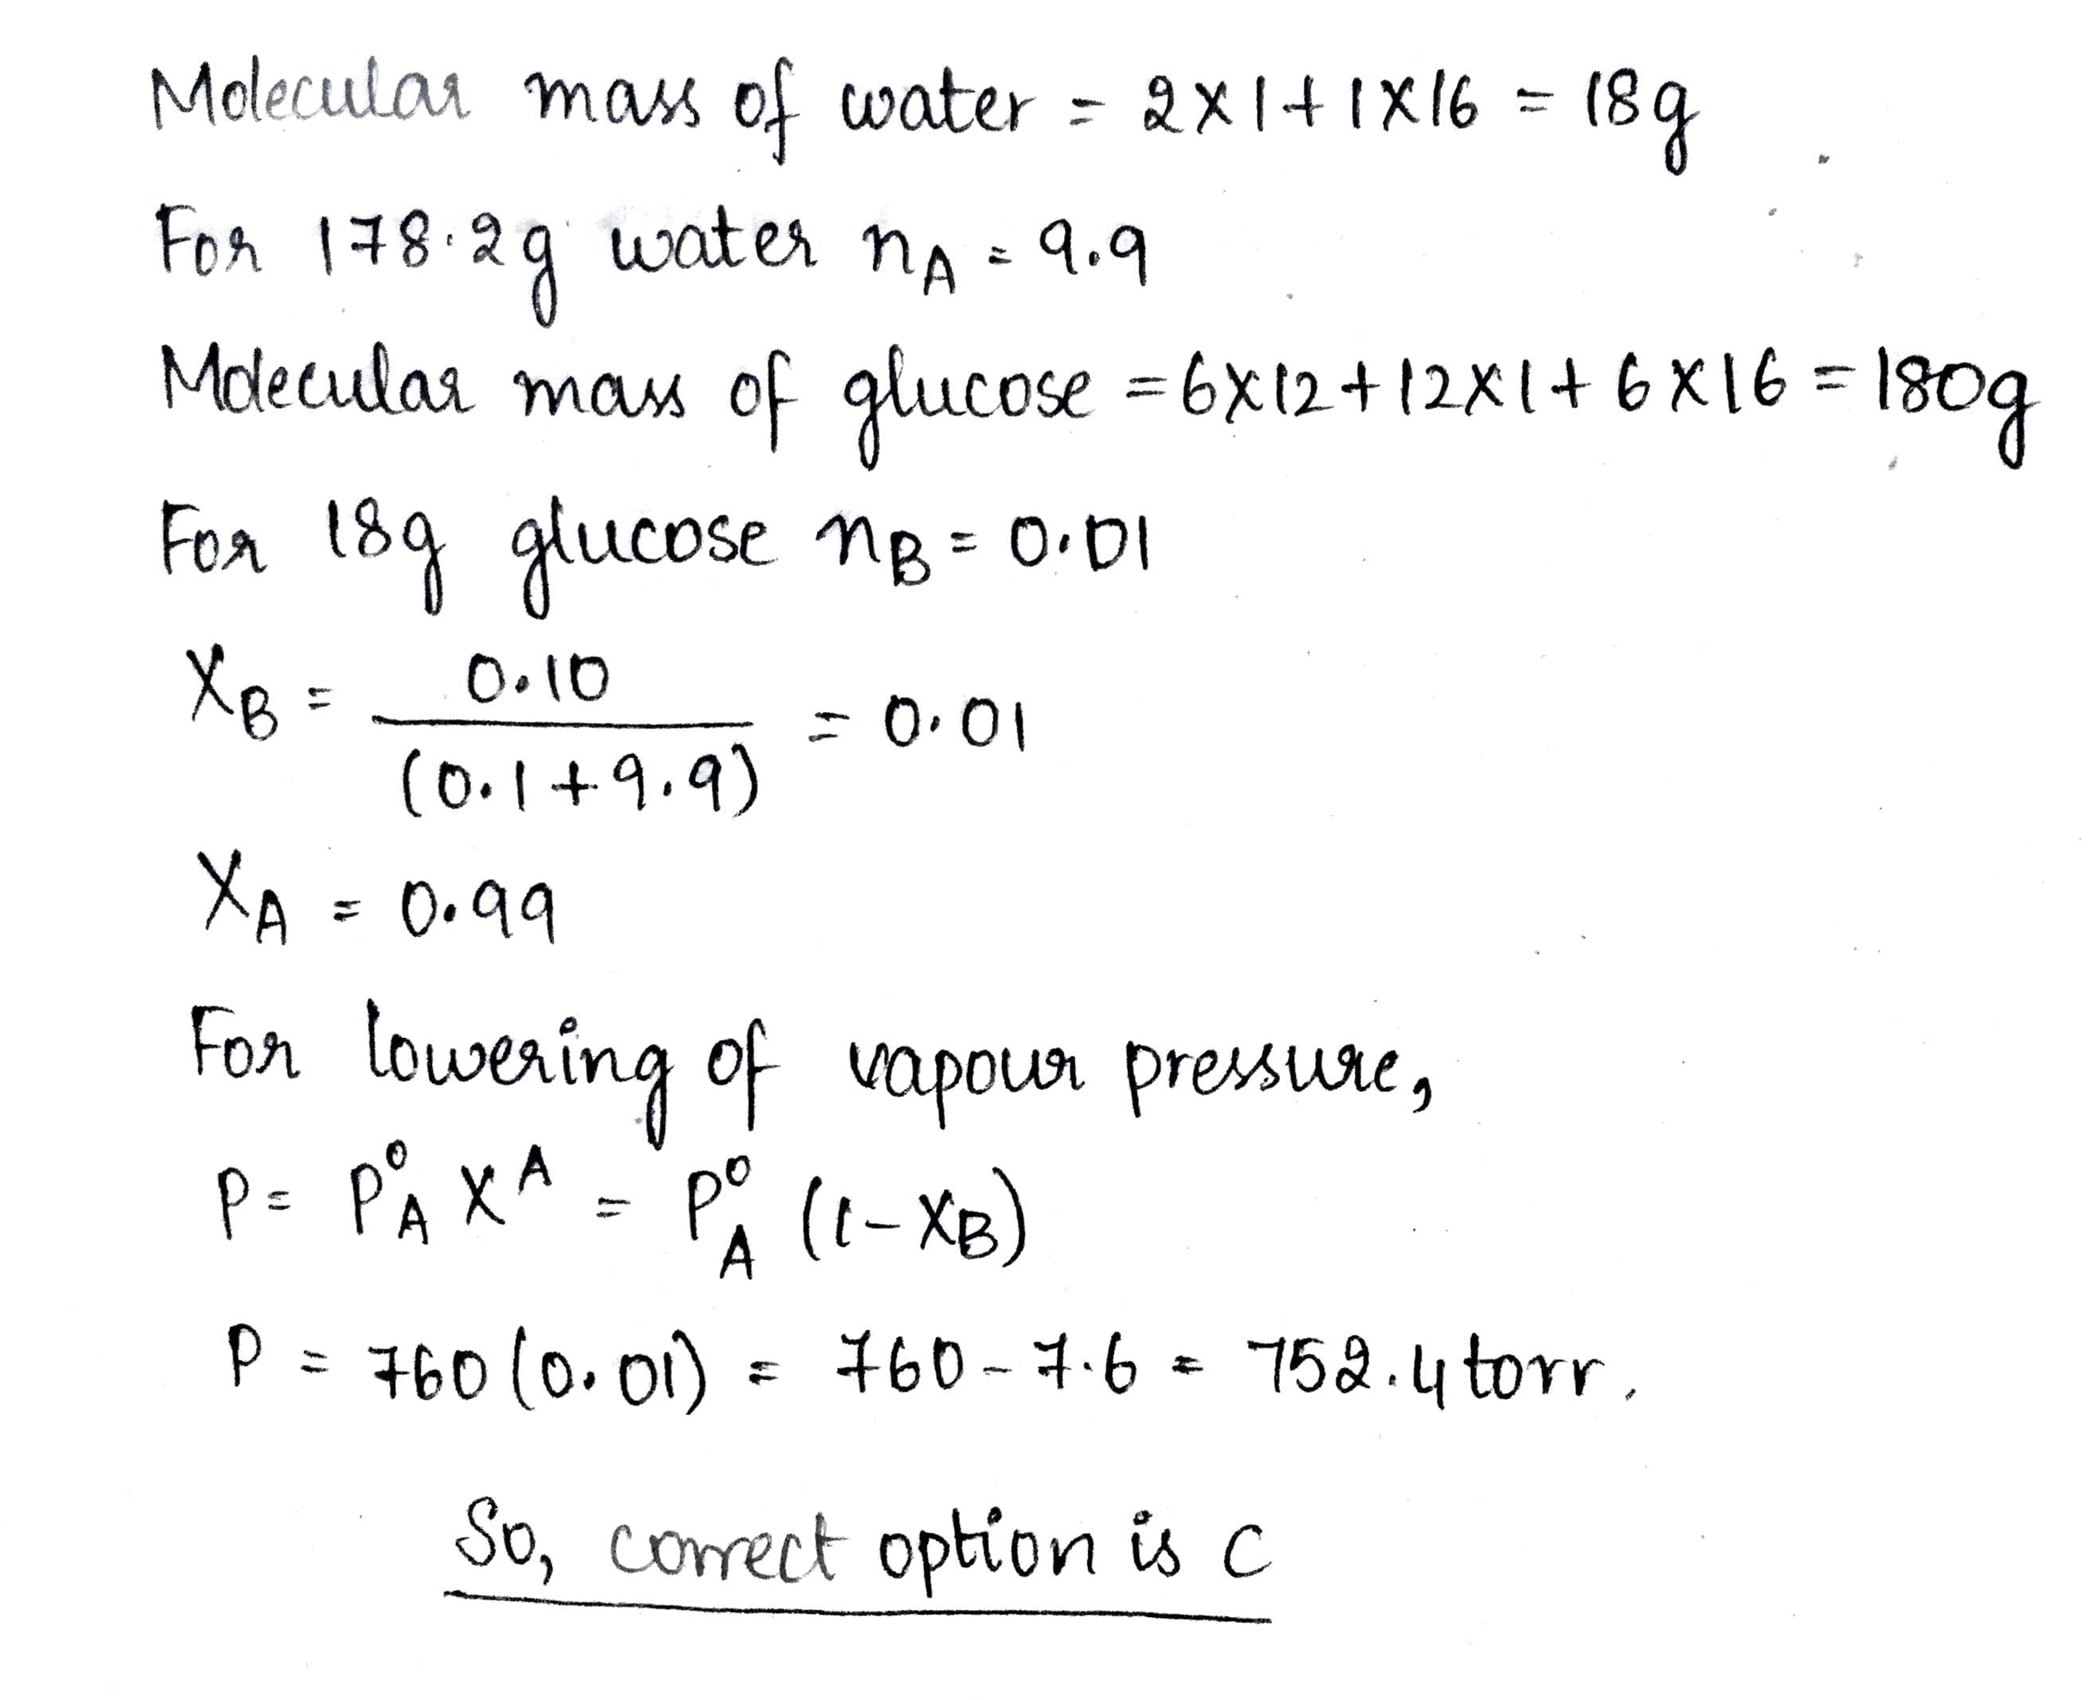 Molecular mass of water = 2×1+1×16 = 18g
For 178.2g water nA = 9.9
Molecular mass of glucose = 6×12+12×1+6×16 = 180g
For 18g glucose nB = 0.01
XB = 0.10 / (0.1+9.9) = 0.01
XA = 0.99
For lowering of vapour pressure,
P = P°A X^A = P°A (1-XB)
P = 760(0.01) = 760-7.6 = 752.4 torr.
So, correct option is C